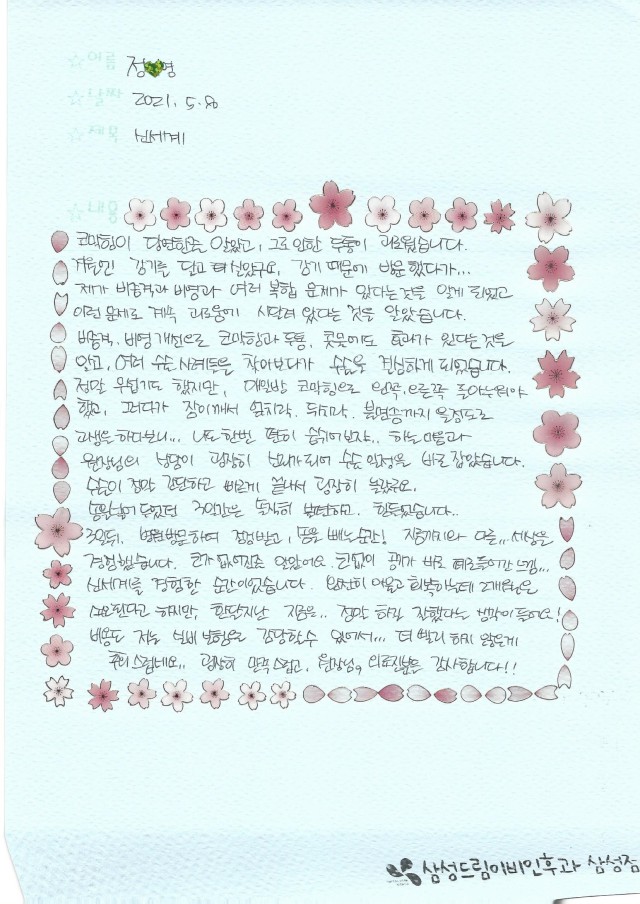 정영
2021. 5. 8
신세계
코막힘이 당연한줄 알았고, 그로 인한 두통이 괴로웠습니다.
감기를 달고 다녔구요, 감기 때문에 비운했다가...
제가 비중격과 비염과 여러 복합 문제가 있다는것을 알게 되었고
이런 문제로 계속 괴로움에 시달려 왔다는 것을 알았습니다.
비중격, 비염 개선으로 코막힘과 두통, 콧물에도 효과가 있다는것을
알고, 여러 수술 사례들을 찾아보다가 수술을 결심하게 되었습니다.
정말 무섭기도 했지만, 매일밤 코막힘으로 왼쪽, 오른쪽 돌아누워야
했고, 그러다가 잠이깨서 뒤치락, 불면증까지 올정도로
고생을 하다보니... 나도 한번 편히 숨쉬어보자.. 하는 마음과
원장님의 상담이 굉장히 신뢰가되어 수술 일정을 바로 잡았습니다.
수술이 정말 간단하고 빠르게 끝나서 굉장히 놀랐구요.
솜이 들었던 3일간은 솔직히 불편하고, 힘들었습니다..
3일뒤, 병원방문하여 점검받고, 솜을 빼는순간! 지금까지와 다른... 세상을
경험했습니다. 코가 없어진줄 알았어요. 코없이 공기가 바로 들어간 느낌...
신세계를 경험한 순간이었습니다. 완전히 아물고 회복하는데 2개월은
소요된다고 하지만, 한달지난 지금은.. 정말 하길 잘했다는 생각이 들어요!
비용도 저는 실비 보험으로 감당할수 있어서... 더 빨리 하지 않은게
후회스럽네요.. 굉장히 만족스럽고, 원장님, 의료진분들 감사합니다!!
삼성드림이비인후과 삼성점